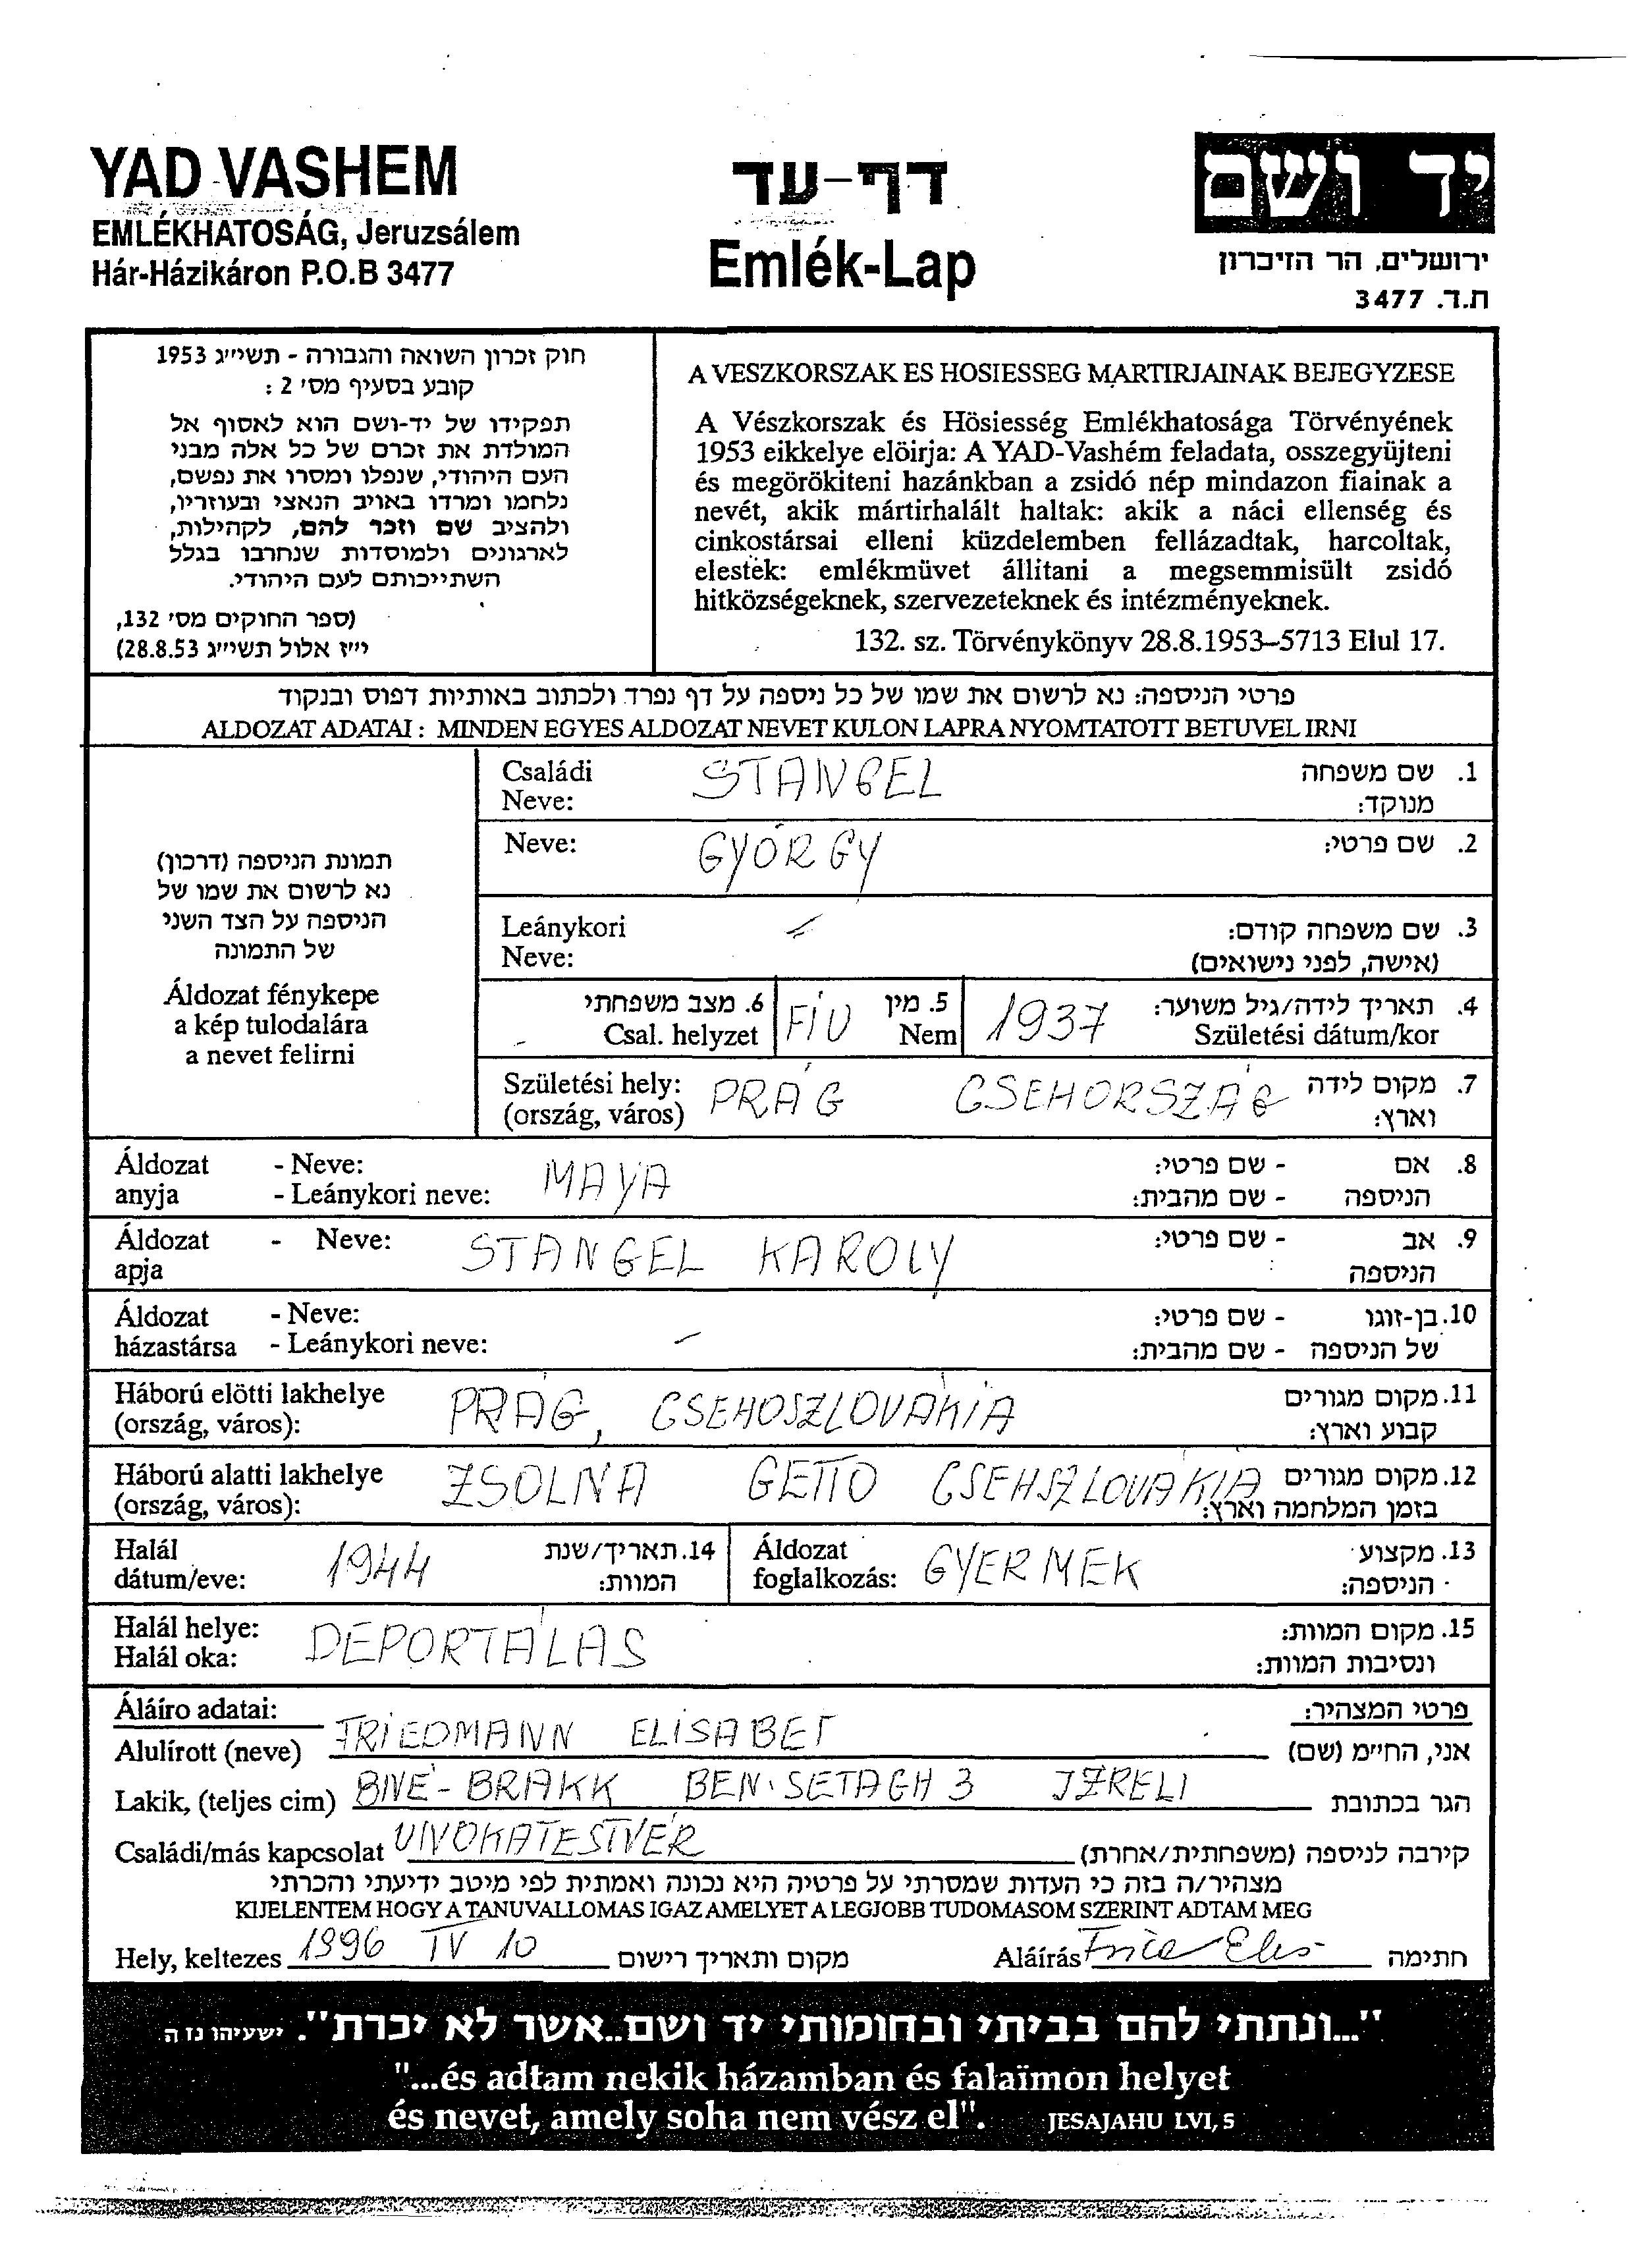 YAD VASHEM
EMLÉKHATOSÁG, Jeruzsálem
Hár-Házikáron P.O.B 3477
דף-עד
Emlék-Lap
יד ושם
ירושלים, הר הזיכרון
ת.ד. 3477
חוק זכרון השואה והגבורה - תשי״ג 1953
קובע בסעיף מס׳ 2 :
תפקידו של יד-ושם הוא לאסוף אל
המולדת את זכרם של כל אלה מבני
העם היהודי, שנפלו ומסרו את נפשם,
נלחמו ומרדו באויב הנאצי ובעוזריו,
ולהציב שם וזכר להם, לקהילות,
לארגונים ולמוסדות שנחרבו בגלל
השתייכותם לעם היהודי.
(ספר החוקים מס׳ 132,
י״ז אלול תשי״ג 28.8.53)
A VESZKORSZAK ES HOSIESSEG MARTIRJAINAK BEJEGYZESE
A Vészkorszak és Hösiesség Emlékhatosága Törvényének
1953 eikkelye elöirja: A YAD-Vashém feladata, osszegyüjteni
és megörökiteni hazánkban a zsidó nép mindazon fiainak a
nevét, akik mártirhalált haltak: akik a náci ellenség és
cinkostársai elleni küzdelemben fellázadtak, harcoltak,
elestek: emlékmüvet állitani a megsemmisült zsidó
hitközségeknek, szervezeteknek és intézményeknek.
132. sz. Törvénykönyv 28.8.1953–5713 Elul 17.
פרטי הניספה: נא לרשום את שמו של כל ניספה על דף נפרד ולכתוב באותיות דפוס ובנקוד
ALDOZAT ADATAI : MINDEN EGYES ALDOZAT NEVET KULON LAPRA NYOMTATOTT BETUVEL IRNI
תמונת הניספה (דרכון)
נא לרשום את שמו של
הניספה על הצד השני
של התמונה
Áldozat fénykepe
a kép tulodalára
a nevet felirni
Családi STANGEL 1. שם משפחה
Neve: מנוקד:
Neve: GYÖRGY 2. שם פרטי:
Leánykori 3. שם משפחה קודם:
Neve: (אישה, לפני נישואים)
6. מצב משפחתי FIÚ 5. מין 1937 4. תאריך לידה/גיל משוער:
Csal. helyzet Nem Születési dátum/kor
Születési hely: PRÁG CSEHORSZÁG 7. מקום לידה
(ország, város) וארץ:
Áldozat - Neve: MAYA - שם פרטי: 8. אם
anyja - Leánykori neve: - שם מהבית: הניספה
Áldozat - Neve: STANGEL KAROLY - שם פרטי: 9. אב
apja הניספה
Áldozat - Neve: - שם פרטי: 10. בן-זוגו
házastársa - Leánykori neve: - שם מהבית: של הניספה
Háború elötti lakhelye PRÁG, CSEHOSZLOVÁKIA 11. מקום מגורים
(ország, város): קבוע וארץ:
Háború alatti lakhelye ZSOLNA GETTO CSEHSZLOVÁKIA 12. מקום מגורים
(ország, város): בזמן המלחמה וארץ:
Halál 1944 14. תאריך/שנת Áldozat GYERMEK 13. מקצוע
dátum/eve: המוות: foglalkozás: הניספה:
Halál helye: DEPORTÁLAS 15. מקום המוות:
Halál oka: ונסיבות המוות:
Áláíro adatai: פרטי המצהיר:
Alulírott (neve) FRIEDMANN ELISABET אני, הח״מ (שם)
Lakik, (teljes cim) BNÉ-BRAKK BEN SETAGH 3 IZRELI הגר בכתובת
Családi/más kapcsolat UNOKATESTVÉR קירבה לניספה (משפחתית/אחרת)
מצהיר/ה בזה כי העדות שמסרתי על פרטיה היא נכונה ואמתית לפי מיטב ידיעתי והכרתי
KIJELENTEM HOGY A TANUVALLOMAS IGAZ AMELYET A LEGJOBB TUDOMASOM SZERINT ADTAM MEG
Hely, keltezes 1996 IV 10 מקום ותאריך רישום Aláírás חתימה
"...ונתתי להם בביתי ובחומותי יד ושם..אשר לא יכרת". ישעיהו נז ה
"...és adtam nekik házamban és falaïmon helyet
és nevet, amely soha nem vész el". JESAJAHU LVI, 5